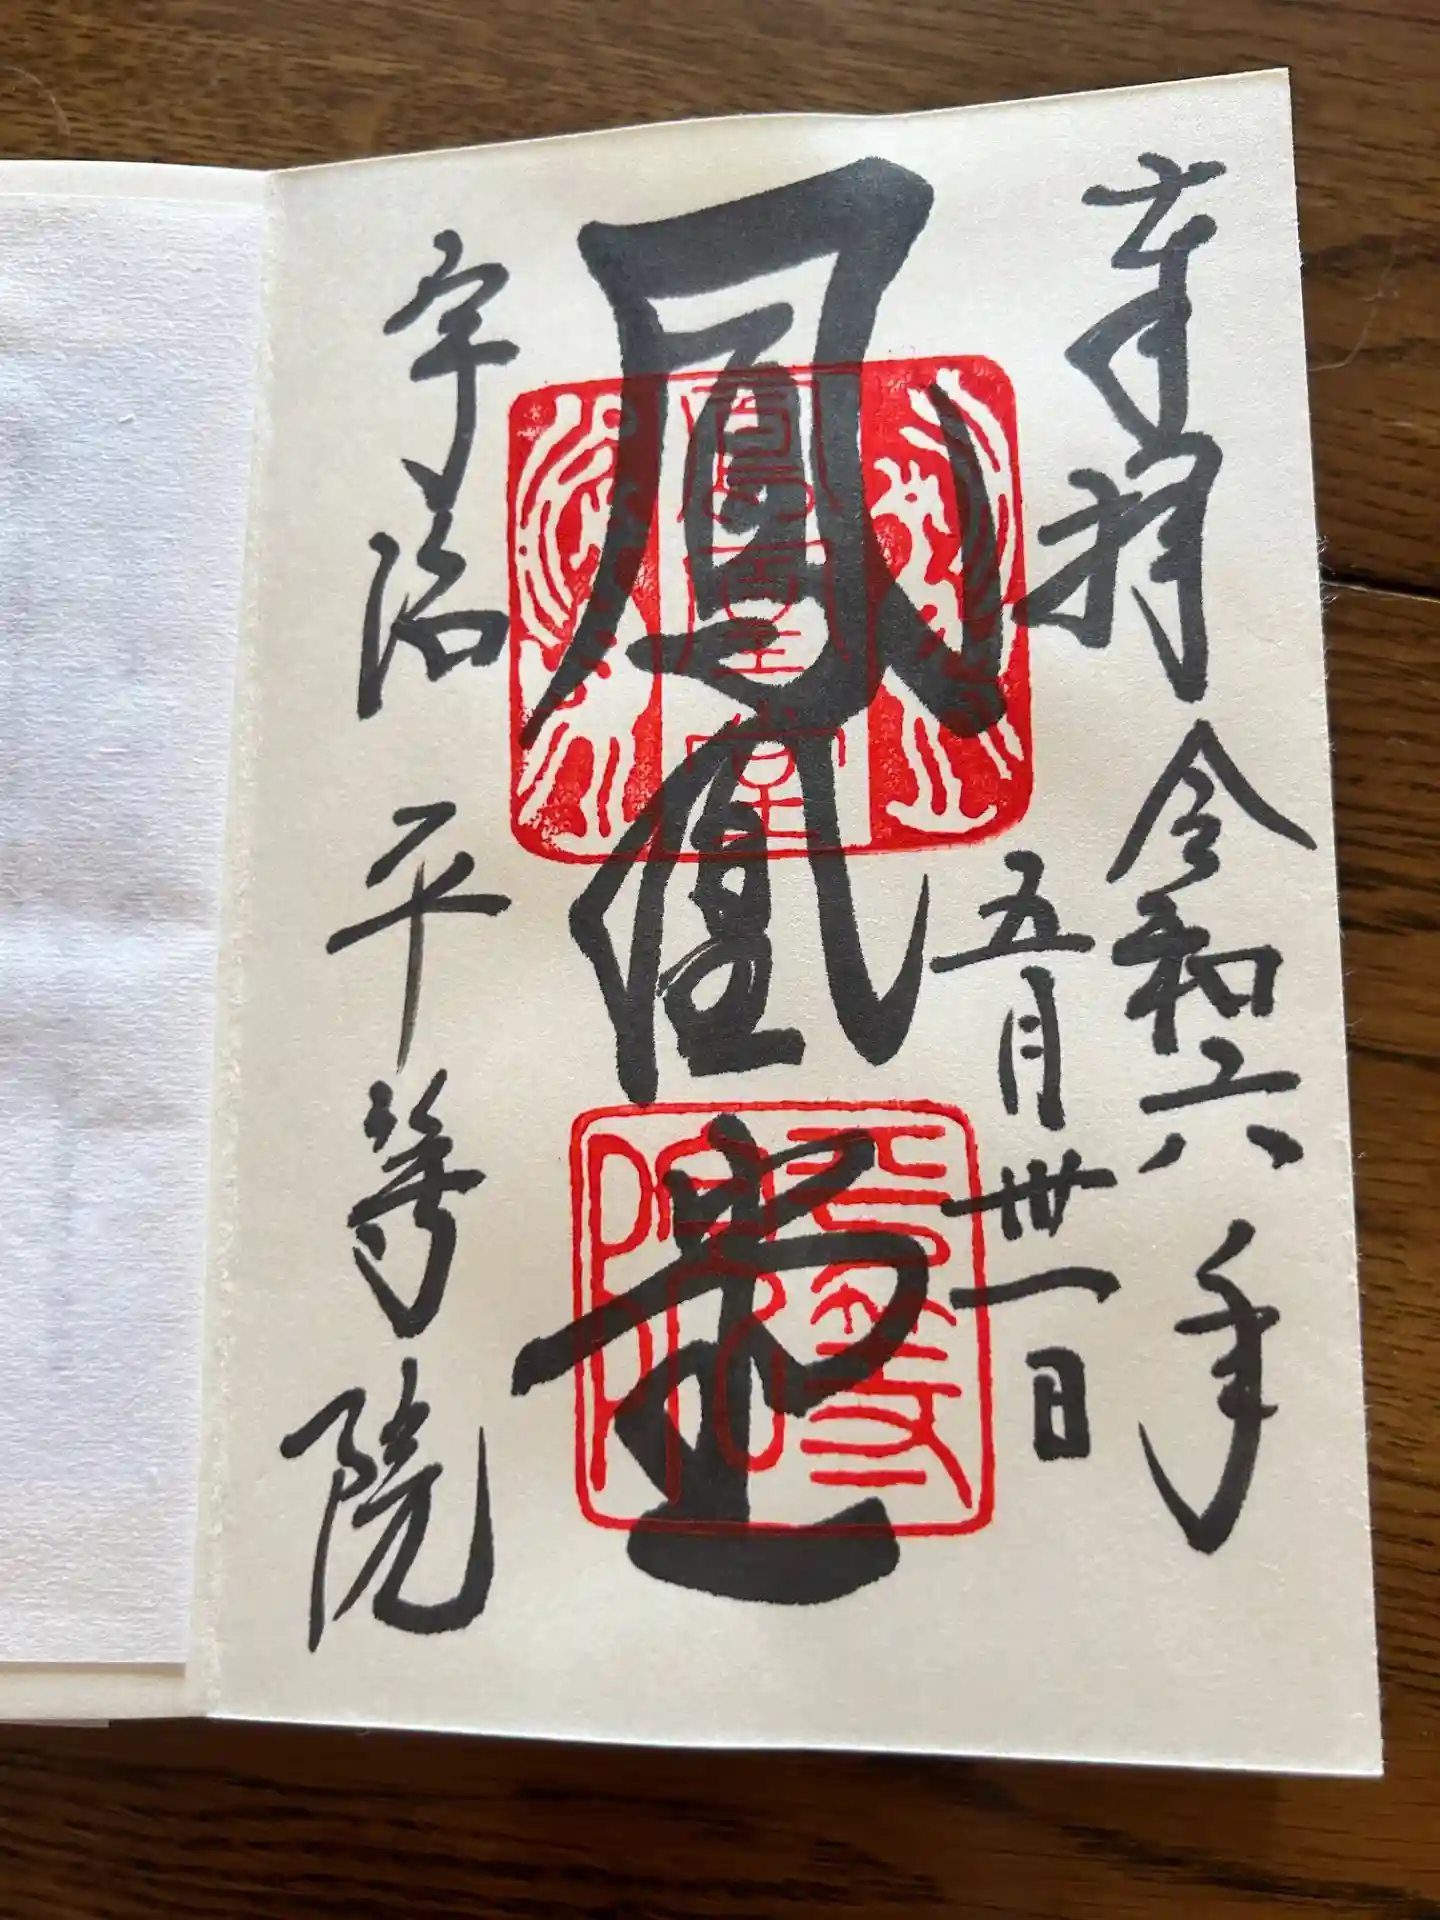 奉拝 令和六年
五月卅一日
鳳凰堂
宇治 平等院
鳳凰堂
平等院